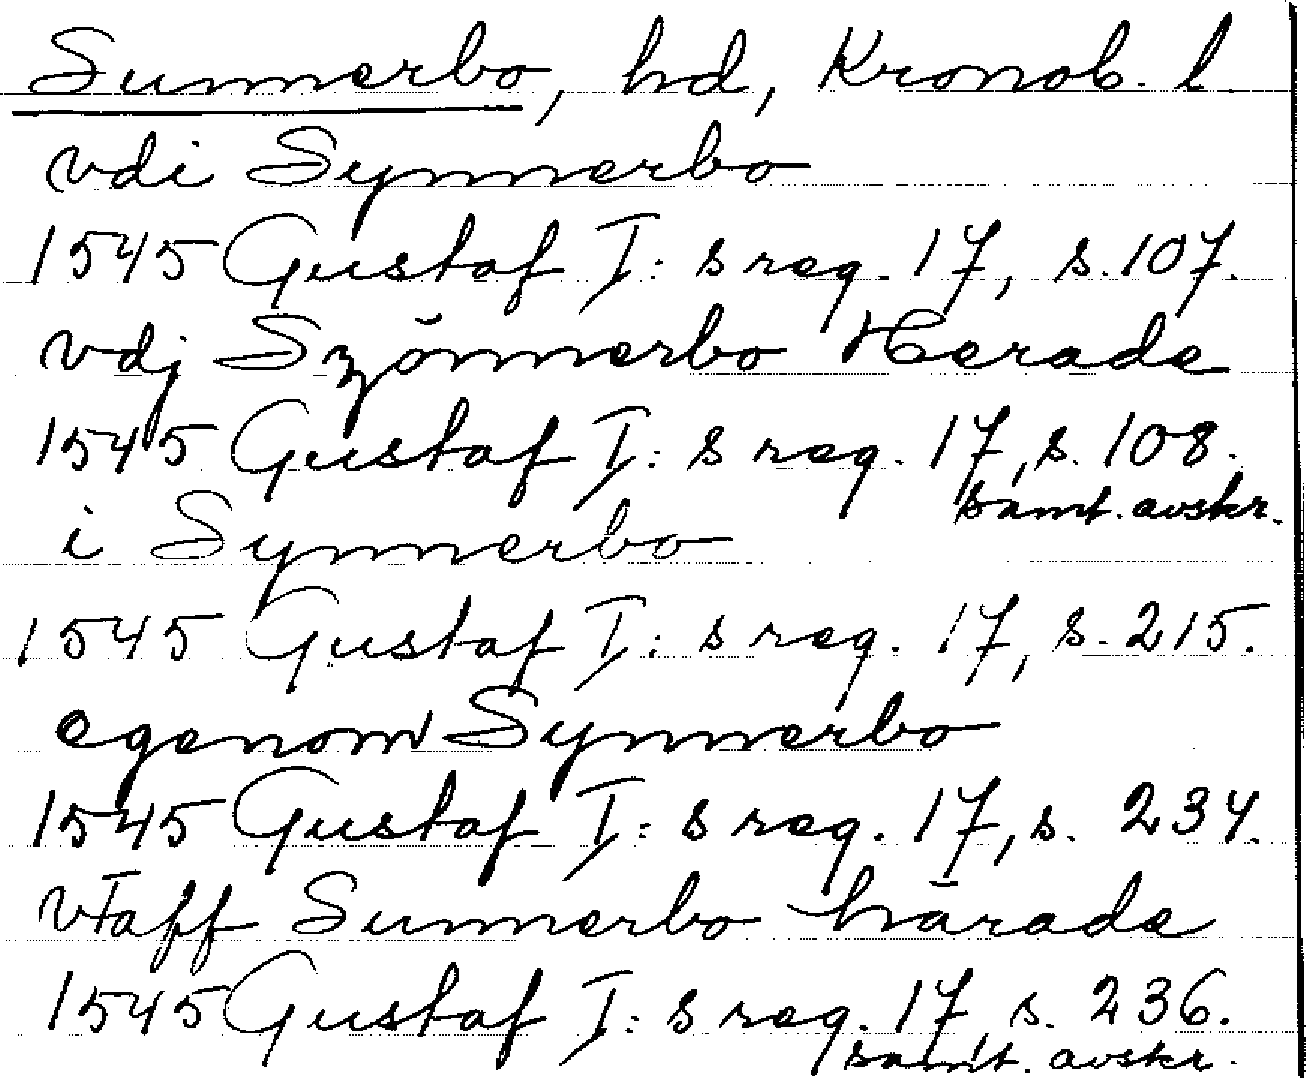 Sunnerbo, hd, Kronob. l
vdi Synnerbo
1545 Gustaf I: s reg. 17, s. 107.
vdj Szŏnnerbo Herade
1545 Gustaf I: s reg. 17, s. 108.
samt. avskr.
i Synnerbo
1545 Gustaf I: s reg. 17, s. 215.
egenom Synnerbo
1545 Gustaf I: s reg. 17, s. 234.
vtaff Sunnerbo hārade
1545 Gustaf I: s reg. 17, s. 236.
samt. avskr.